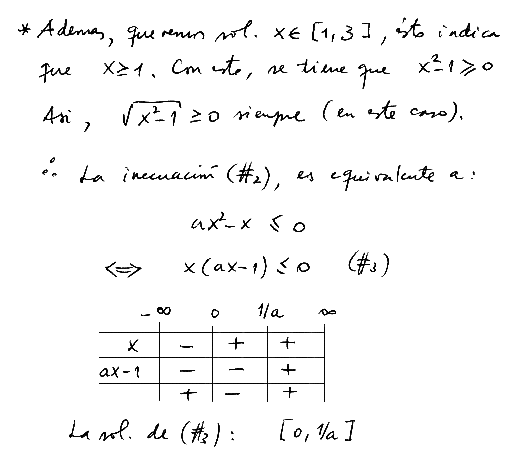 * Además, queremos sol. x ∈ [1,3], ésto indica
que x ≥ 1. Con esto, se tiene que x²-1 ≥ 0
Así, √(x²-1) ≥ 0 siempre (en este caso).
∴ La inecuación (#₂), es equivalente a:
ax²-x ≤ 0
⟺ x(ax-1) ≤ 0 (#₃)
-∞ 0 1/a ∞
x - + +
ax-1 - - +
+ - +
La sol. de (#₃): [0, 1/a]